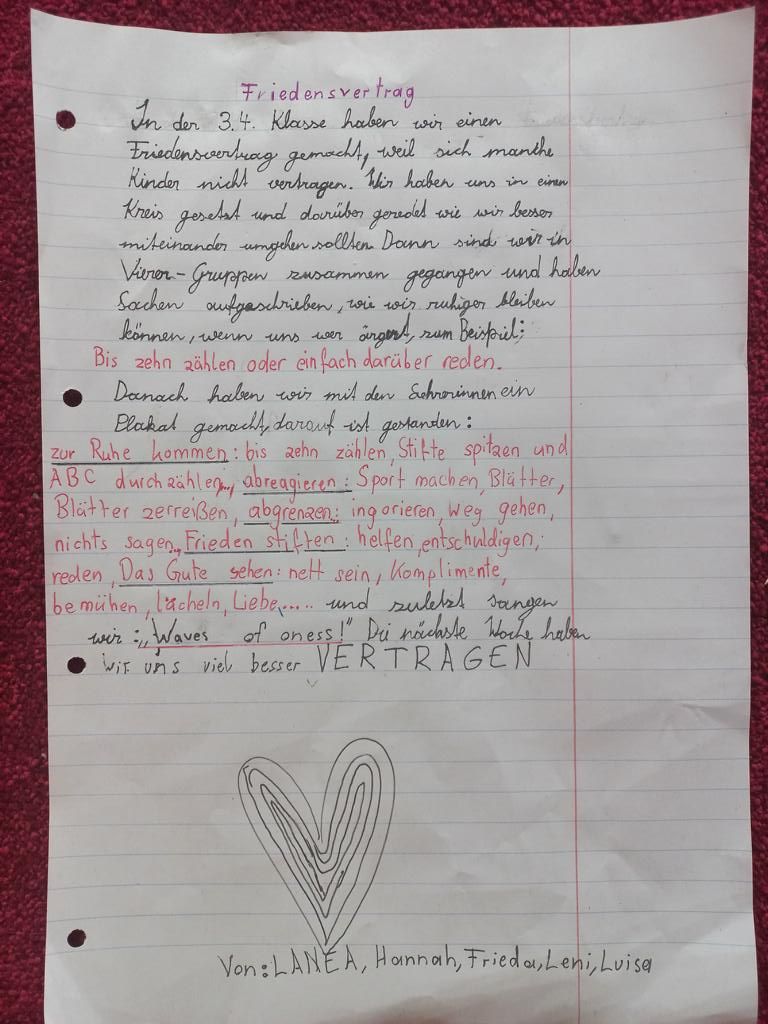 Friedensvertrag
In der 3.4. Klasse haben wir einen
Friedensvertrag gemacht, weil sich manche
Kinder nicht vertragen. Wir haben uns in einen
Kreis gesetzt und darüber geredet wie wir besser
miteinander umgehen sollten. Dann sind wir in
Vierer-Gruppen zusammen gegangen und haben
Sachen aufgeschrieben, wie wir ruhiger bleiben
können, wenn uns wer ärgert, zum Beispiel:
Bis zehn zählen oder einfach darüber reden.
Danach haben wir mit den Lehrerinnen ein
Plakat gemacht, darauf ist gestanden:
zur Ruhe kommen: bis zehn zählen, Stifte spitzen und
ABC durchzählen..., abreagieren: Sport machen, Blätter,
Blätter zerreißen, abgrenzen: ingorieren, weg gehen,
nichts sagen., Frieden stiften: helfen, entschuldigen,
reden, Das Gute sehen: nett sein, Komplimente,
bemühen, lächeln, Liebe,..... und zuletzt sangen
wir: „Waves of oness!" Die nächste Woche haben
wir uns viel besser VERTRAGEN
Von: LANEA, Hannah, Frieda, Leni, Luisa